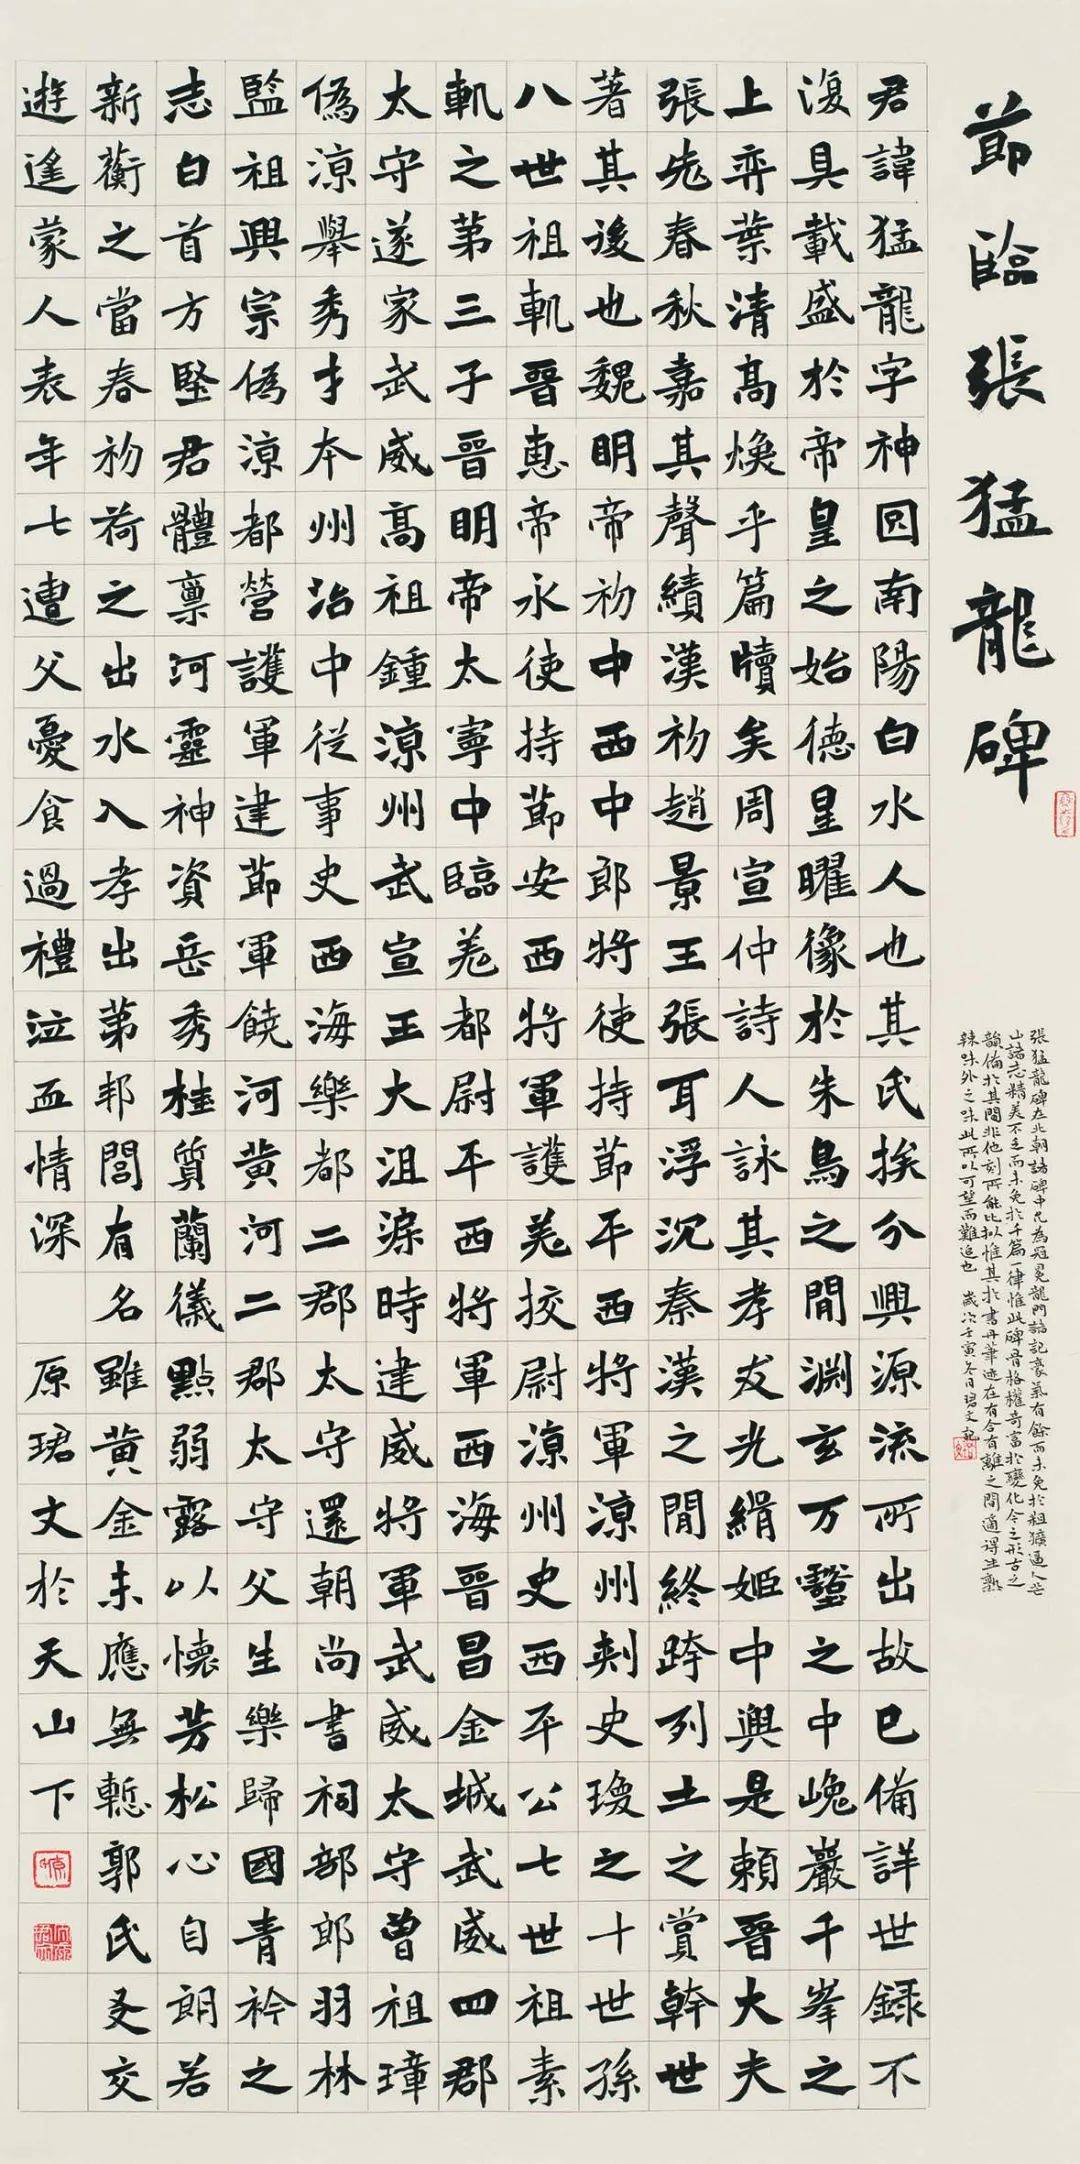 莭臨張猛龍碑
張猛龍碑在北朝諸碑中尤為冠冕龍門諸記豪氣有餘而未免於粗獷逼人芒
山諸志精美不乏而未免於千篇一律惟此碑骨格權奇富於變化今之形古之
韻備於其間非他刻所能比擬惟其於書丹筆迹在有合有離之間適得生熟
辣味外之味此所以可望而難追也 歲次壬寅冬月珺文記
君諱猛龍字神囙南陽白水人也其氏族分興源流所出故已備詳世録不
復具載盛於帝皇之始德星曜像於朱鳥之間淵玄万壑之中巉巖千峯之
上弈葉清高煥乎篇牘矣周宣仲詩人詠其孝友光緝姬中興是賴晉大夫
張老春秋嘉其聲績漢初趙景王張耳浮沉秦漢之間終跨列土之賞幹世
著其後也魏明帝初中西中郎將使持莭平西將軍涼州刺史瓊之十世孫
八世祖軌晉惠帝永使持莭安西將軍護羌挍尉涼州史西平公七世祖素
軌之第三子晉明帝太寧中臨羌都尉平西將軍西海晉昌金城武威四郡
太守遂家武威高祖鍾涼州武宣王大沮渠時建威將軍武威太守曾祖璋
偽涼舉秀才本州治中從事史西海樂都二郡太守還朝尚書祠部郎羽林
監祖興宗偽涼都營護軍建莭軍饒河黃河二郡太守父生樂歸國青衿之
志白首方堅君體稟河靈神資岳秀桂質蘭儀點弱露以懷芳松心自朗若
新蘅之當春初荷之出水入孝出第邦閭有名雖黃金未應無慙郭氏友交
遊遙蒙人表年七遭父憂食過禮泣血情深 原珺文於天山下